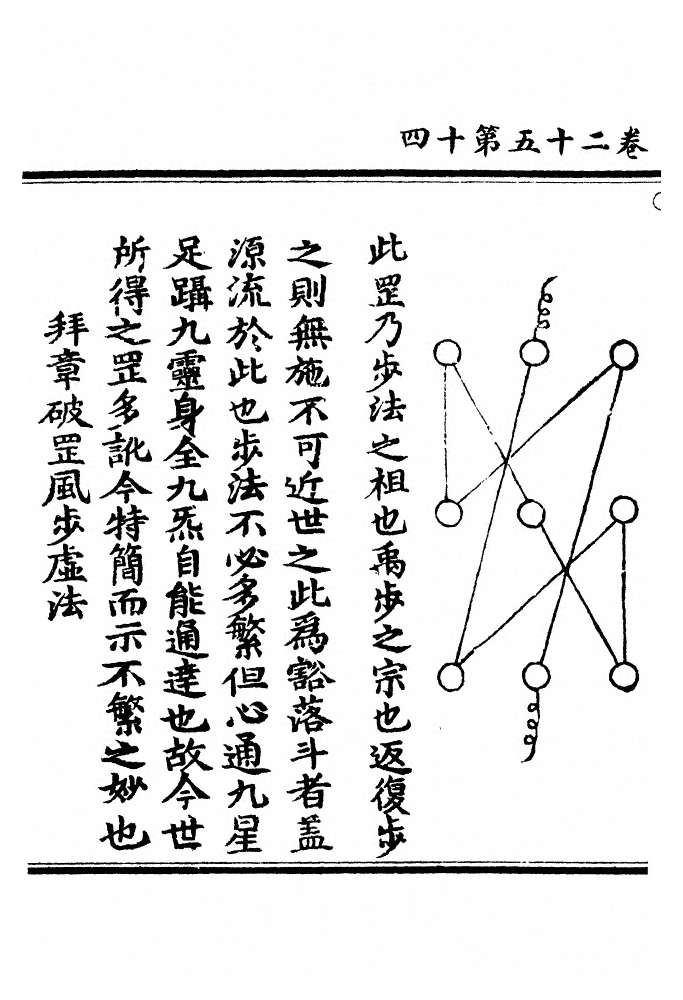 卷二十五第十四
此罡乃步法之祖也禹步之宗也返復步
之則無施不可近世之此為豁落斗者盖
源流於此也步法不必多繁但心通九星
足躡九靈身全九炁自能通達也故今世
所得之罡多訛今特簡而示不繁之妙也
拜章破罡風步虛法